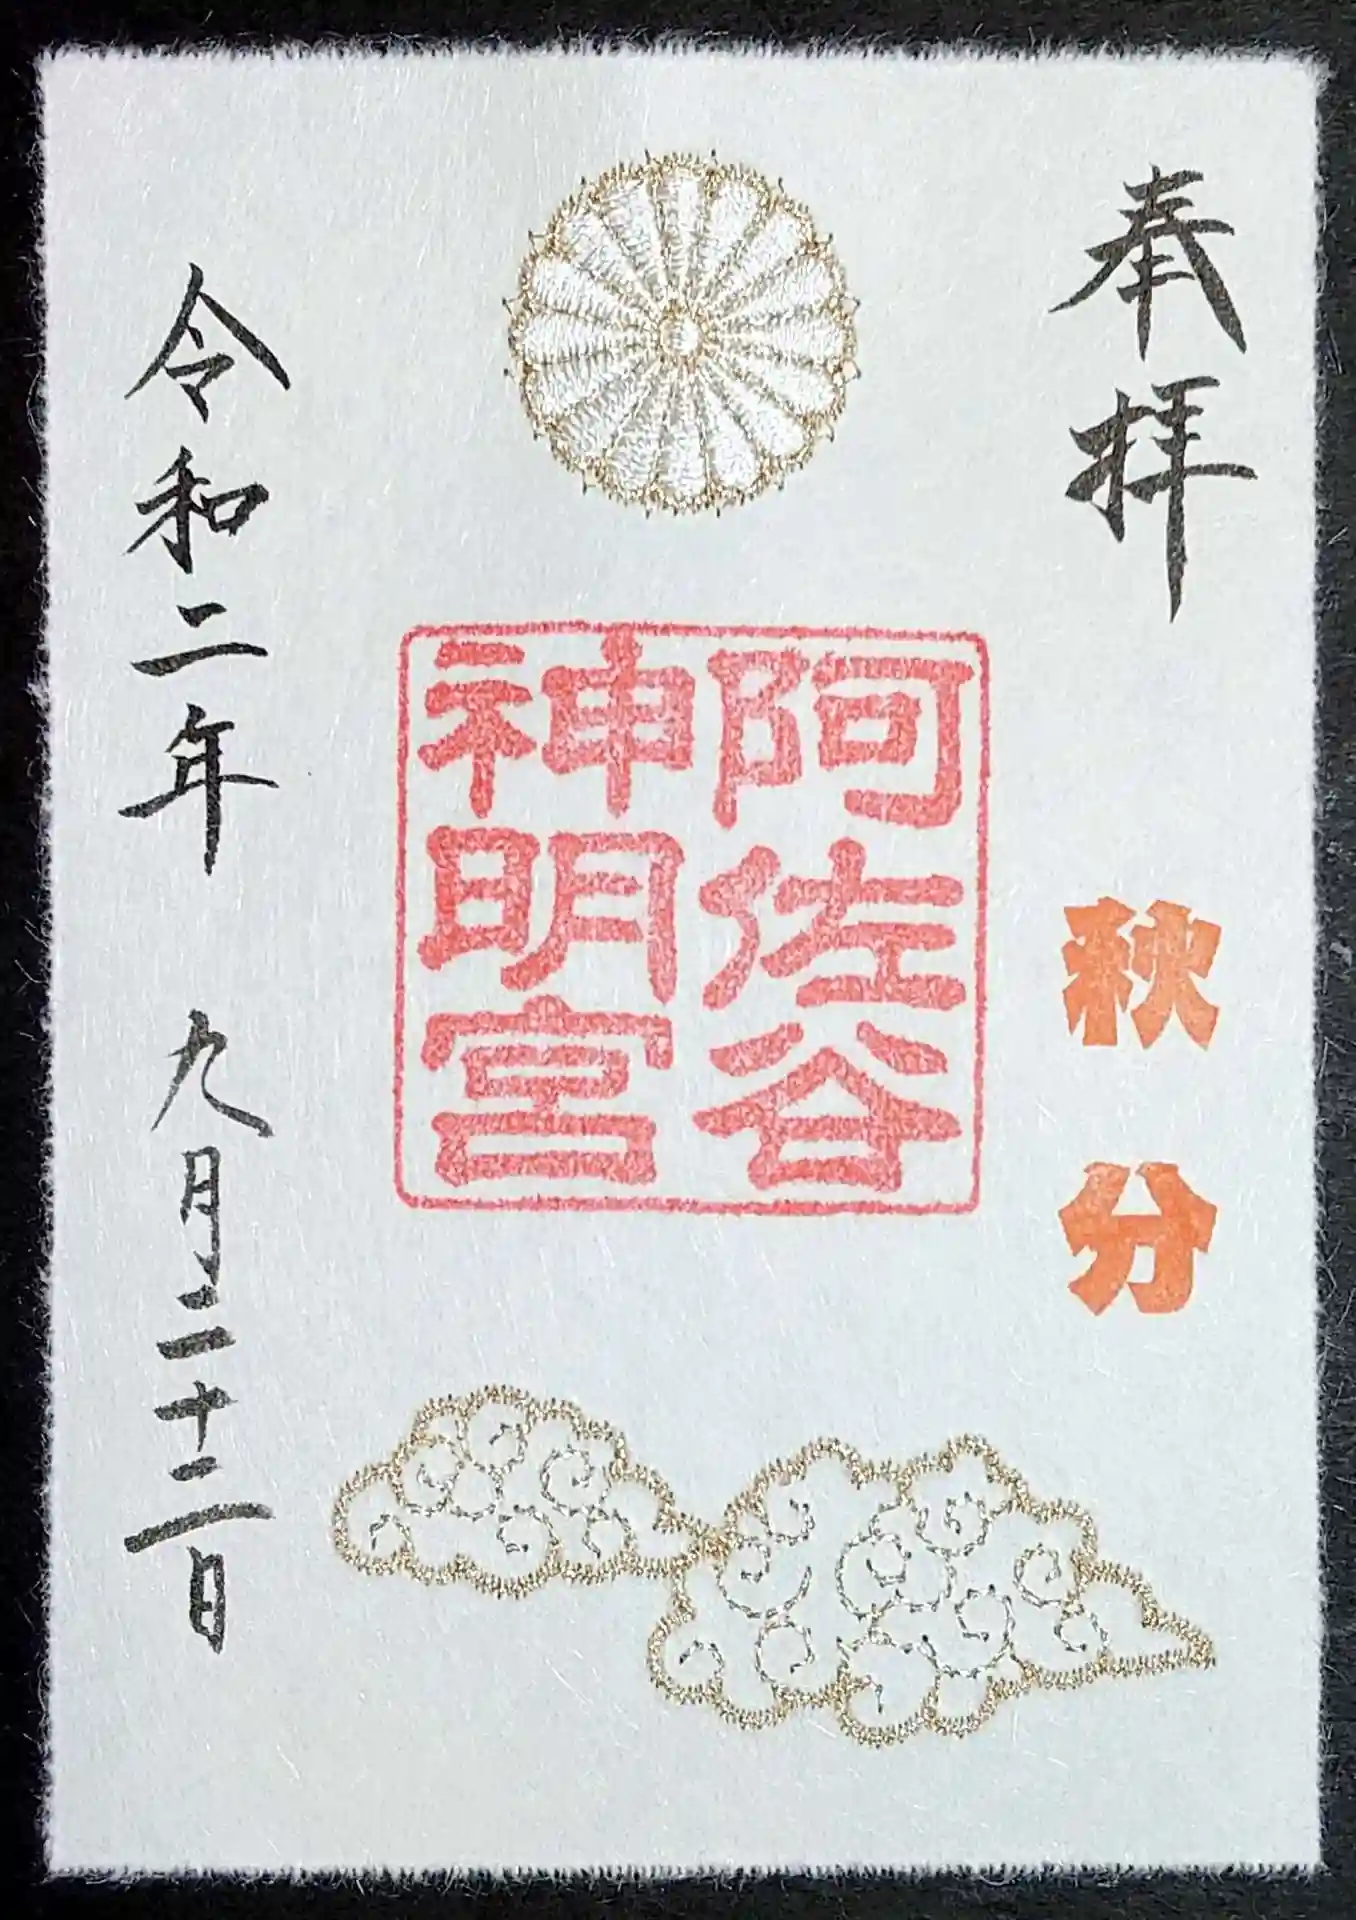 奉拝
秋分
阿佐谷
神明宮
令和二年 九月二十二日